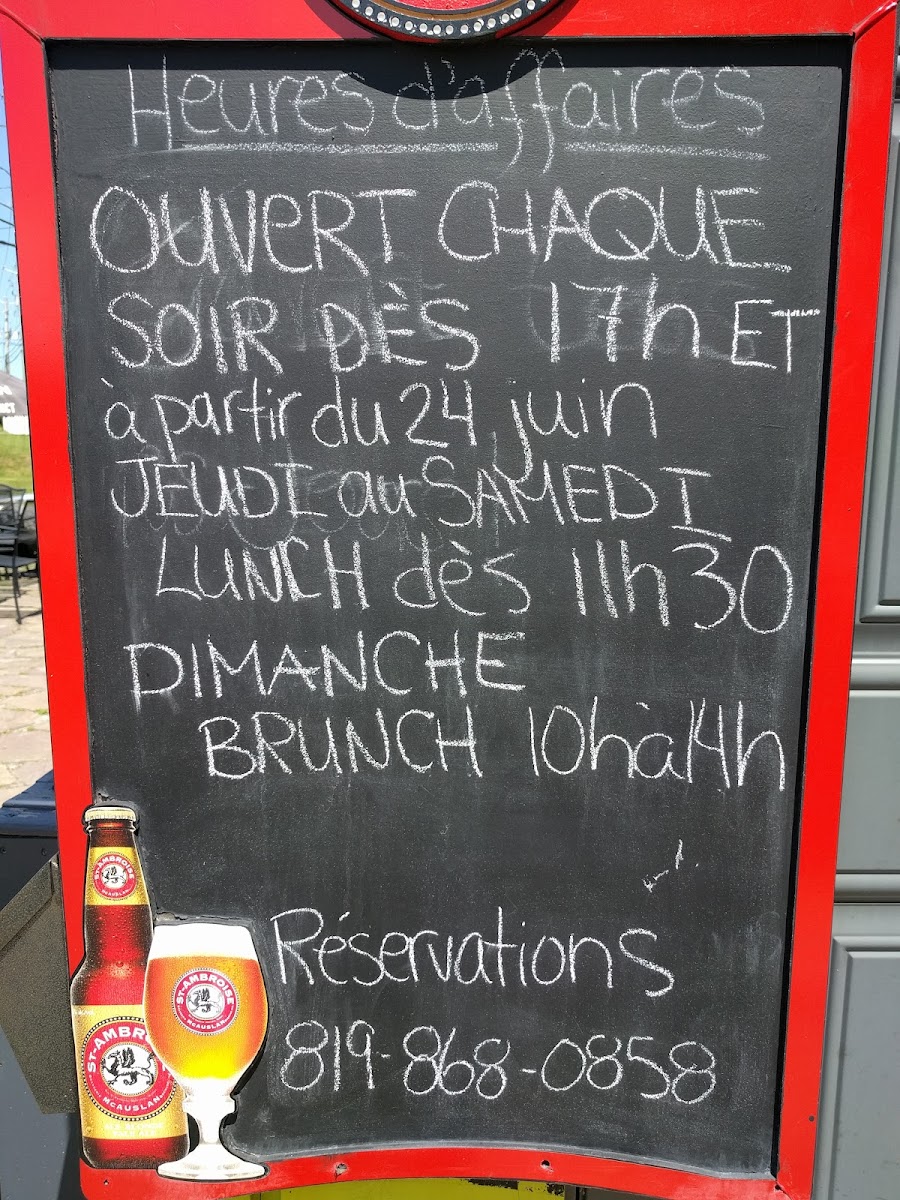 Heures d'affaires
OUVERT CHAQUE
SOIR DÈS 17h ET
à partir du 24 juin
JEUDI au SAMEDI
LUNCH dès 11h30
DIMANCHE
BRUNCH 10h à 14h
Réservations
819-868-0858
ST-AMBROISE
McAUSLAN
ST-AMBROISE
McAUSLAN
ST-AMBRO
McAUSLAN
PALE ALE